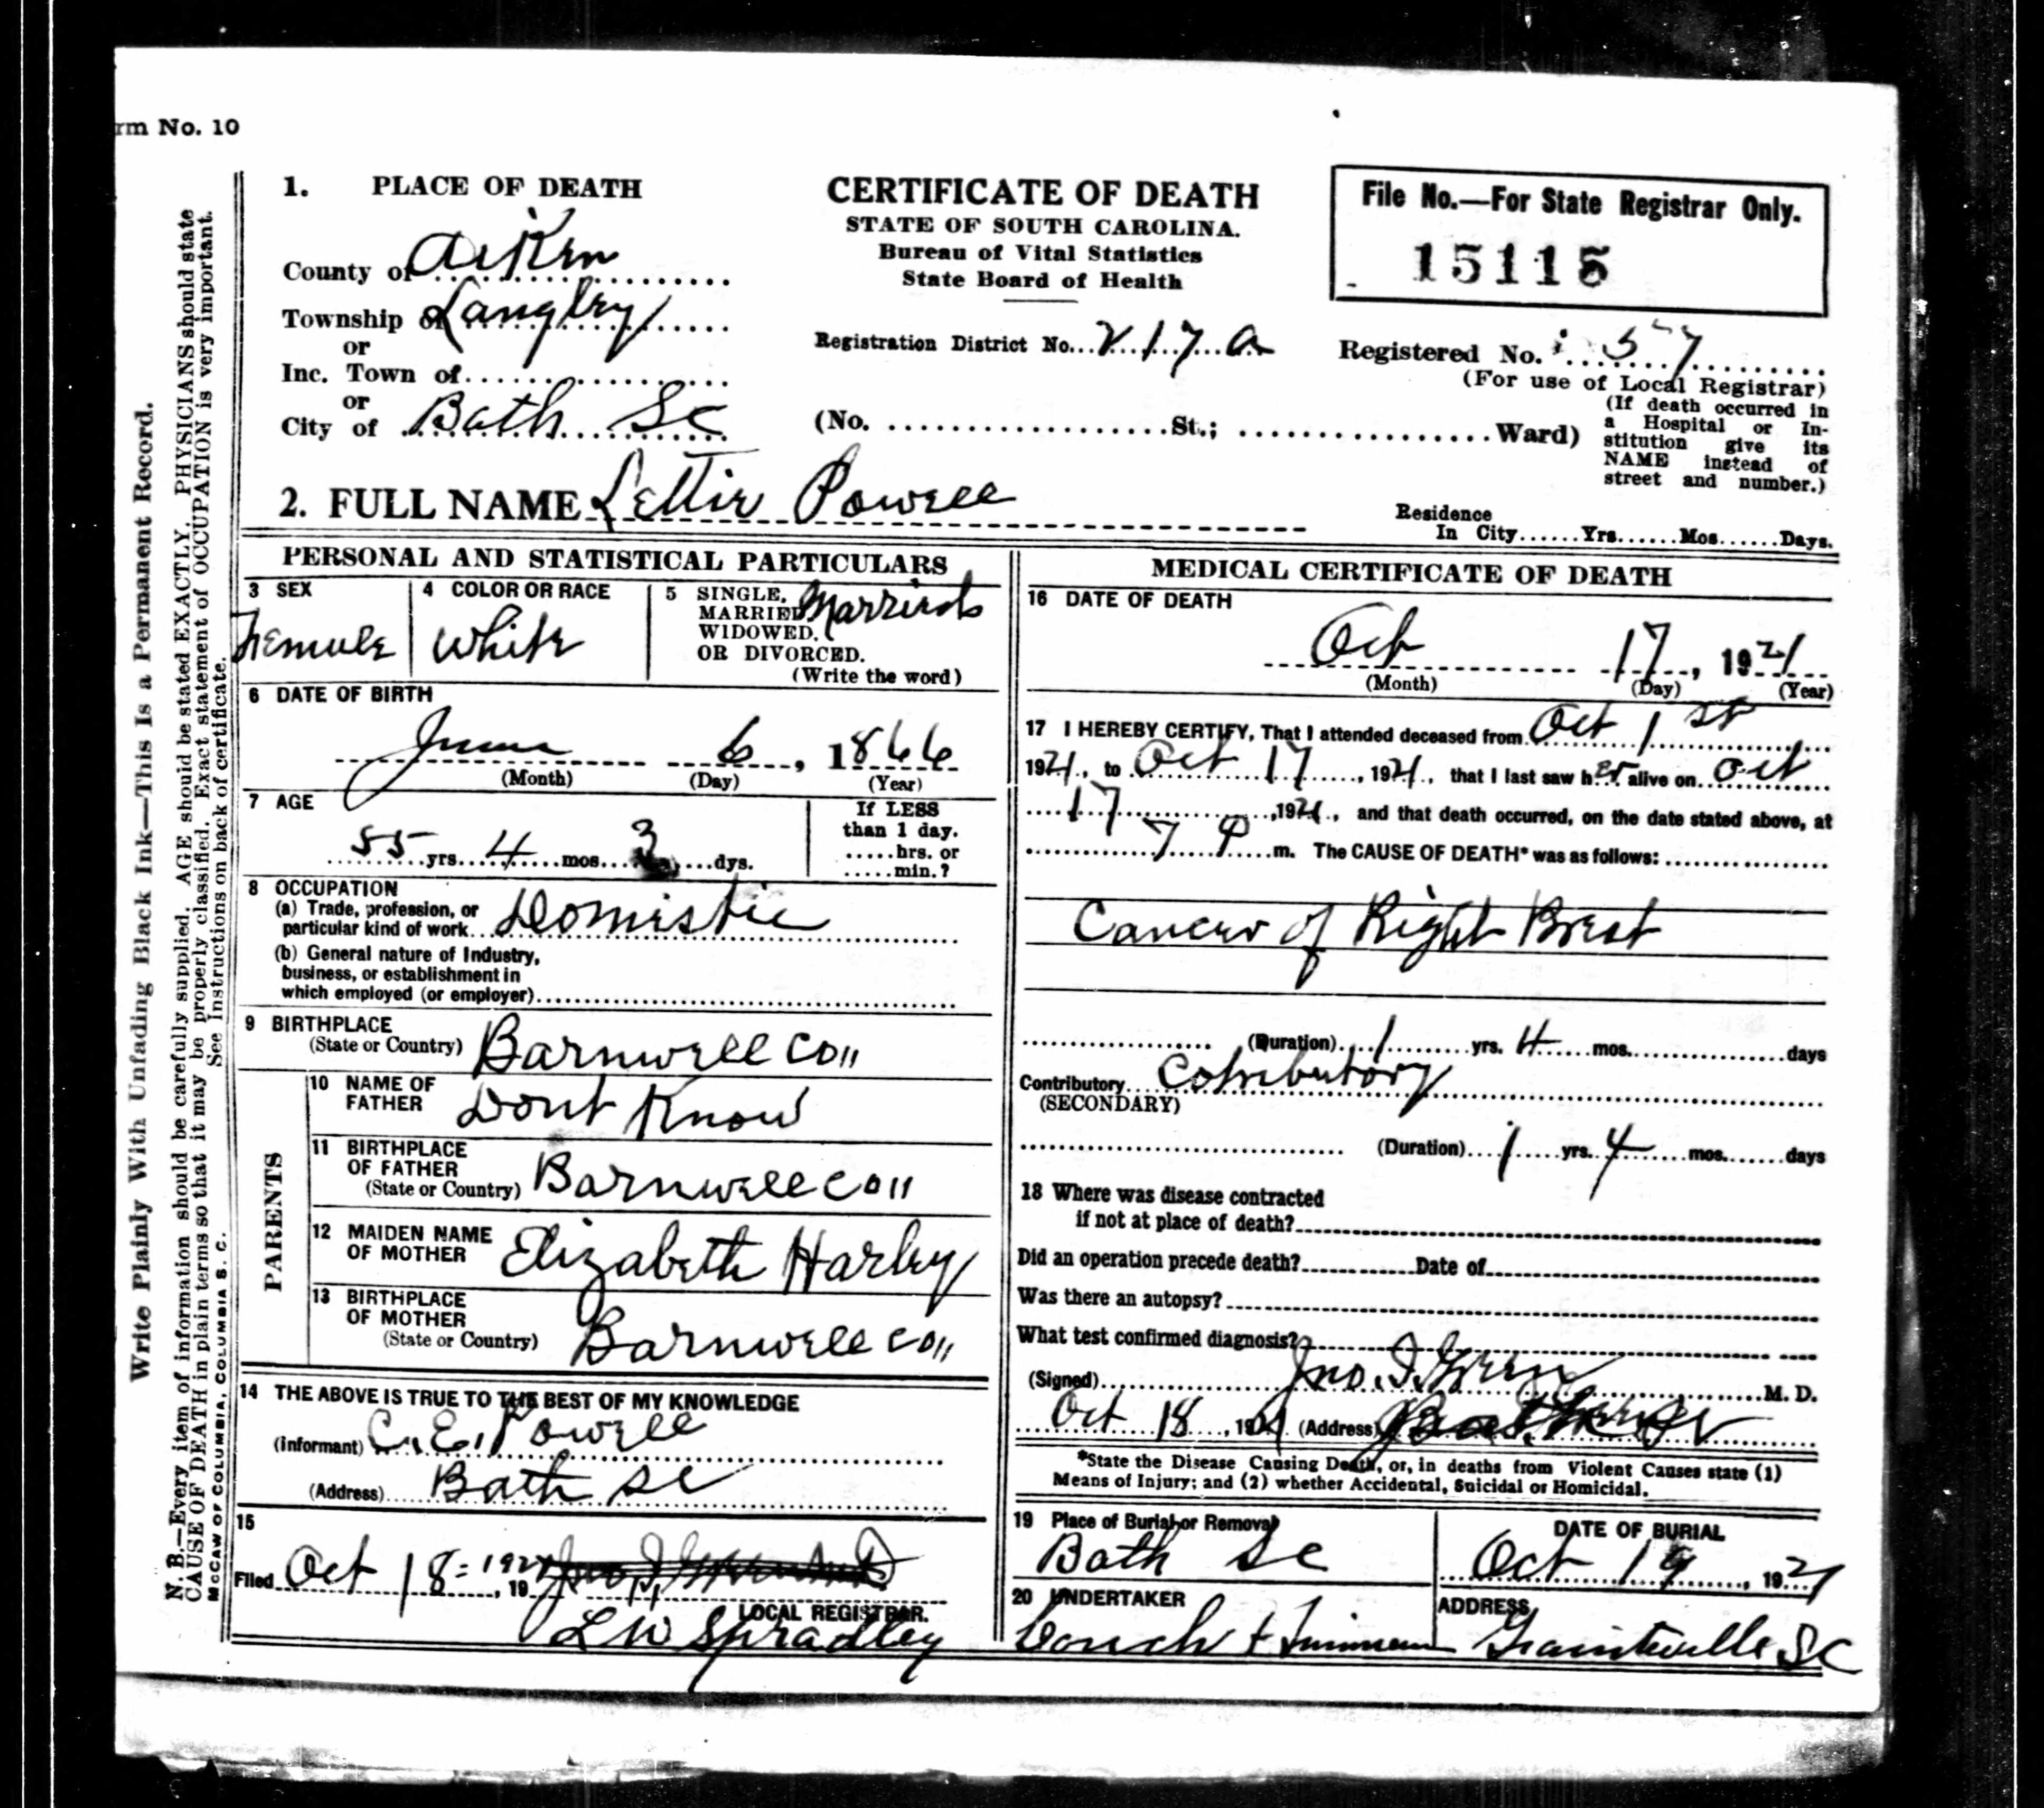 rm No. 10
1. PLACE OF DEATH
County of Aiken
Township of Langley
or
Inc. Town of
or
City of Bath SC
CERTIFICATE OF DEATH
STATE OF SOUTH CAROLINA.
Bureau of Vital Statistics
State Board of Health
Registration District No. 217 a
(No. St.; Ward)
File No.—For State Registrar Only.
15115
Registered No. 57
(For use of Local Registrar)
(If death occurred in
a Hospital or In-
stitution give its
NAME instead of
street and number.)
2. FULL NAME Lettie Powell
Residence
In City......Yrs......Mos......Days.
PERSONAL AND STATISTICAL PARTICULARS
3 SEX
Female
4 COLOR OR RACE
White
5 SINGLE,
MARRIED Married
WIDOWED,
OR DIVORCED.
(Write the word)
6 DATE OF BIRTH
June 6, 1866
(Month) (Day) (Year)
7 AGE
55 yrs. 4 mos. 3 dys.
If LESS
than 1 day.
.....hrs. or
.....min.?
8 OCCUPATION
(a) Trade, profession, or
particular kind of work Domistic
(b) General nature of Industry,
business, or establishment in
which employed (or employer)
9 BIRTHPLACE
(State or Country) Barnwell Co"
PARENTS
10 NAME OF
FATHER Dont Know
11 BIRTHPLACE
OF FATHER
(State or Country) Barnwell Co"
12 MAIDEN NAME
OF MOTHER Elizabeth Harley
13 BIRTHPLACE
OF MOTHER
(State or Country) Barnwell Co"
14 THE ABOVE IS TRUE TO THE BEST OF MY KNOWLEDGE
(informant) C. E. Powell
(Address) Bath SC
15
Filed Oct 18 - 1921, 19
LOCAL REGISTRAR.
L W Spradley
MEDICAL CERTIFICATE OF DEATH
16 DATE OF DEATH
Oct 17, 1921
(Month) (Day) (Year)
17 I HEREBY CERTIFY, That I attended deceased from Oct 1st
1921, to Oct 17, 1921, that I last saw her alive on Oct
17, 1921, and that death occurred, on the date stated above, at
7 P m. The CAUSE OF DEATH* was as follows:
Cancer of Right Breast
(Duration) 1 yrs. 4 mos. days
Contributory Cotributory
(SECONDARY)
(Duration) 1 yrs. 4 mos. days
18 Where was disease contracted
if not at place of death?
Did an operation precede death? Date of
Was there an autopsy?
What test confirmed diagnosis?
(Signed) Jno. I. Green M. D.
Oct 18, 1921 (Address) Bath
*State the Disease Causing Death, or, in deaths from Violent Causes state (1)
Means of Injury; and (2) whether Accidental, Suicidal or Homicidal.
19 Place of Burial or Removal
Bath SC
DATE OF BURIAL
Oct 19, 1921
20 UNDERTAKER
Couch &
ADDRESS
Graniteville SC
Write Plainly With Unfading Black Ink—This Is a Permanent Record.
N. B.—Every item of information should be carefully supplied. AGE should be stated EXACTLY. PHYSICIANS should state
CAUSE OF DEATH in plain terms so that it may be properly classified. Exact statement of OCCUPATION is very important.
See instructions on back of certificate.
McCAW OF COLUMBIA, COLUMBIA S. C.